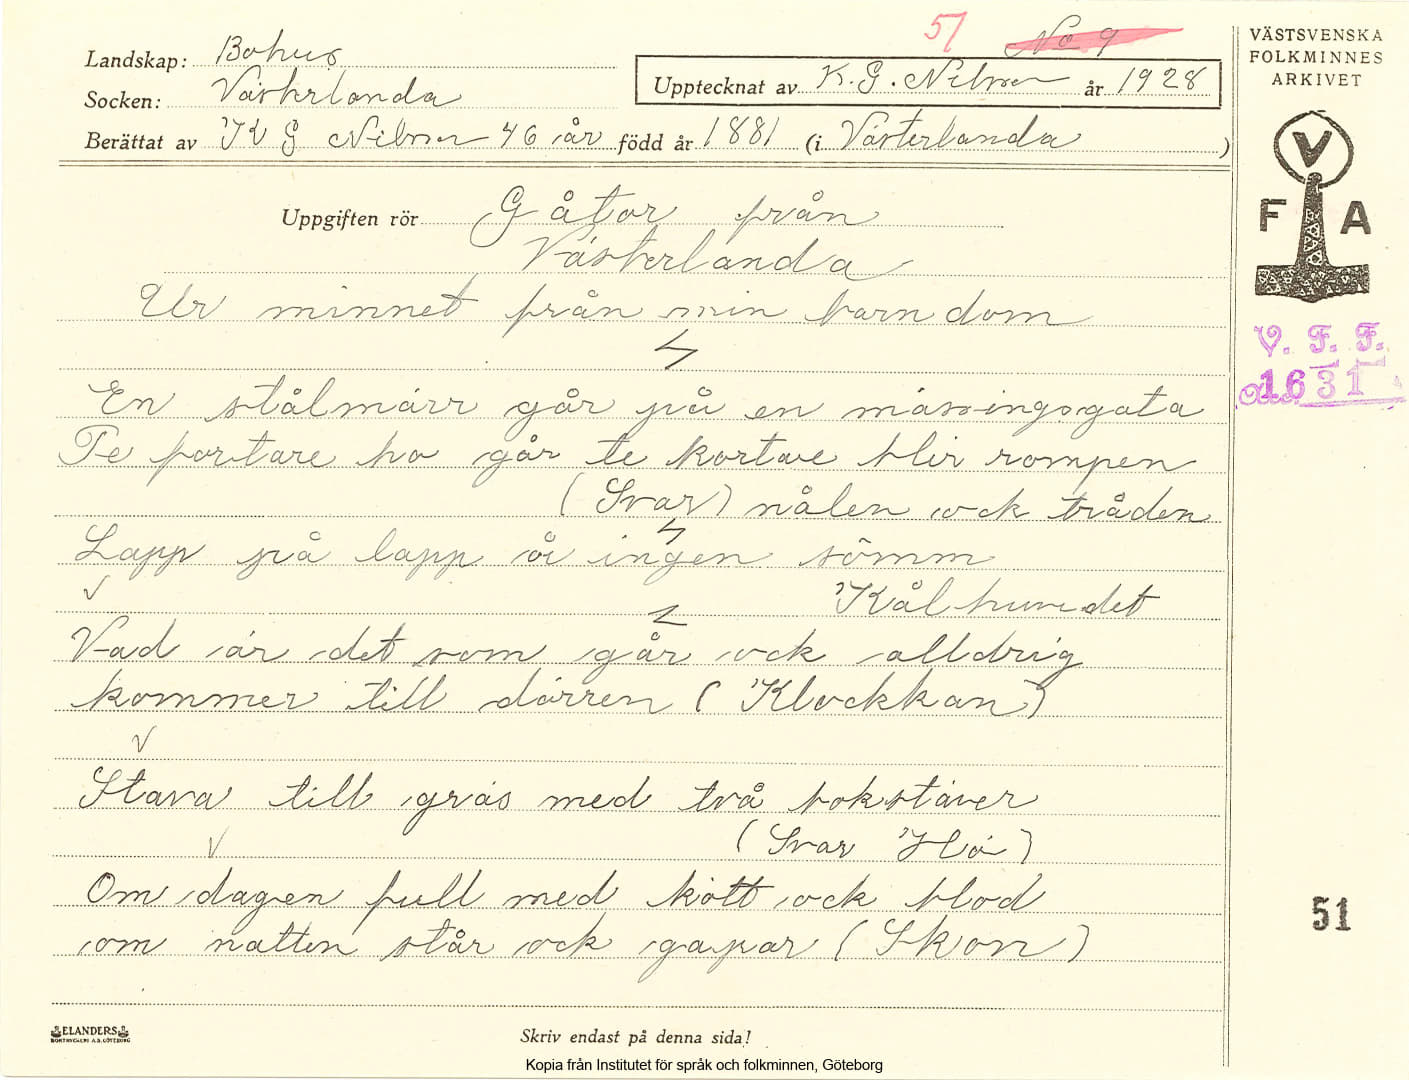 51 No 9
Landskap: Bohus
Socken: Västerlanda
Upptecknat av K. G. Nilsson år 1928
Berättat av K G Nilsson 46 år född år 1881 (i Västerlanda )
Uppgiften rör Gåtor från
Västerlanda
Ur minnet från min barndom
En stålmärr går på en mässingsgata
Te fortare ho går te kortare blir rompen
(Svar) nålen ock tråden
Lapp på lapp å ingen sömm
Kålhuvudet
Vad är det som går ock alldrig
kommer till dörren (Klockkan)
Stava till gräs med två bokstäver
(Svar Hö)
Om dagen full med kött ock blod
om natten står ock gapar (Skon)
ELANDERS
BOKTRYCKERI A.B. GÖTEBORG
Skriv endast på denna sida!
Kopia från Institutet för språk och folkminnen, Göteborg
VÄSTSVENSKA
FOLKMINNES
ARKIVET
V
F A
V. F. F.
1631
51